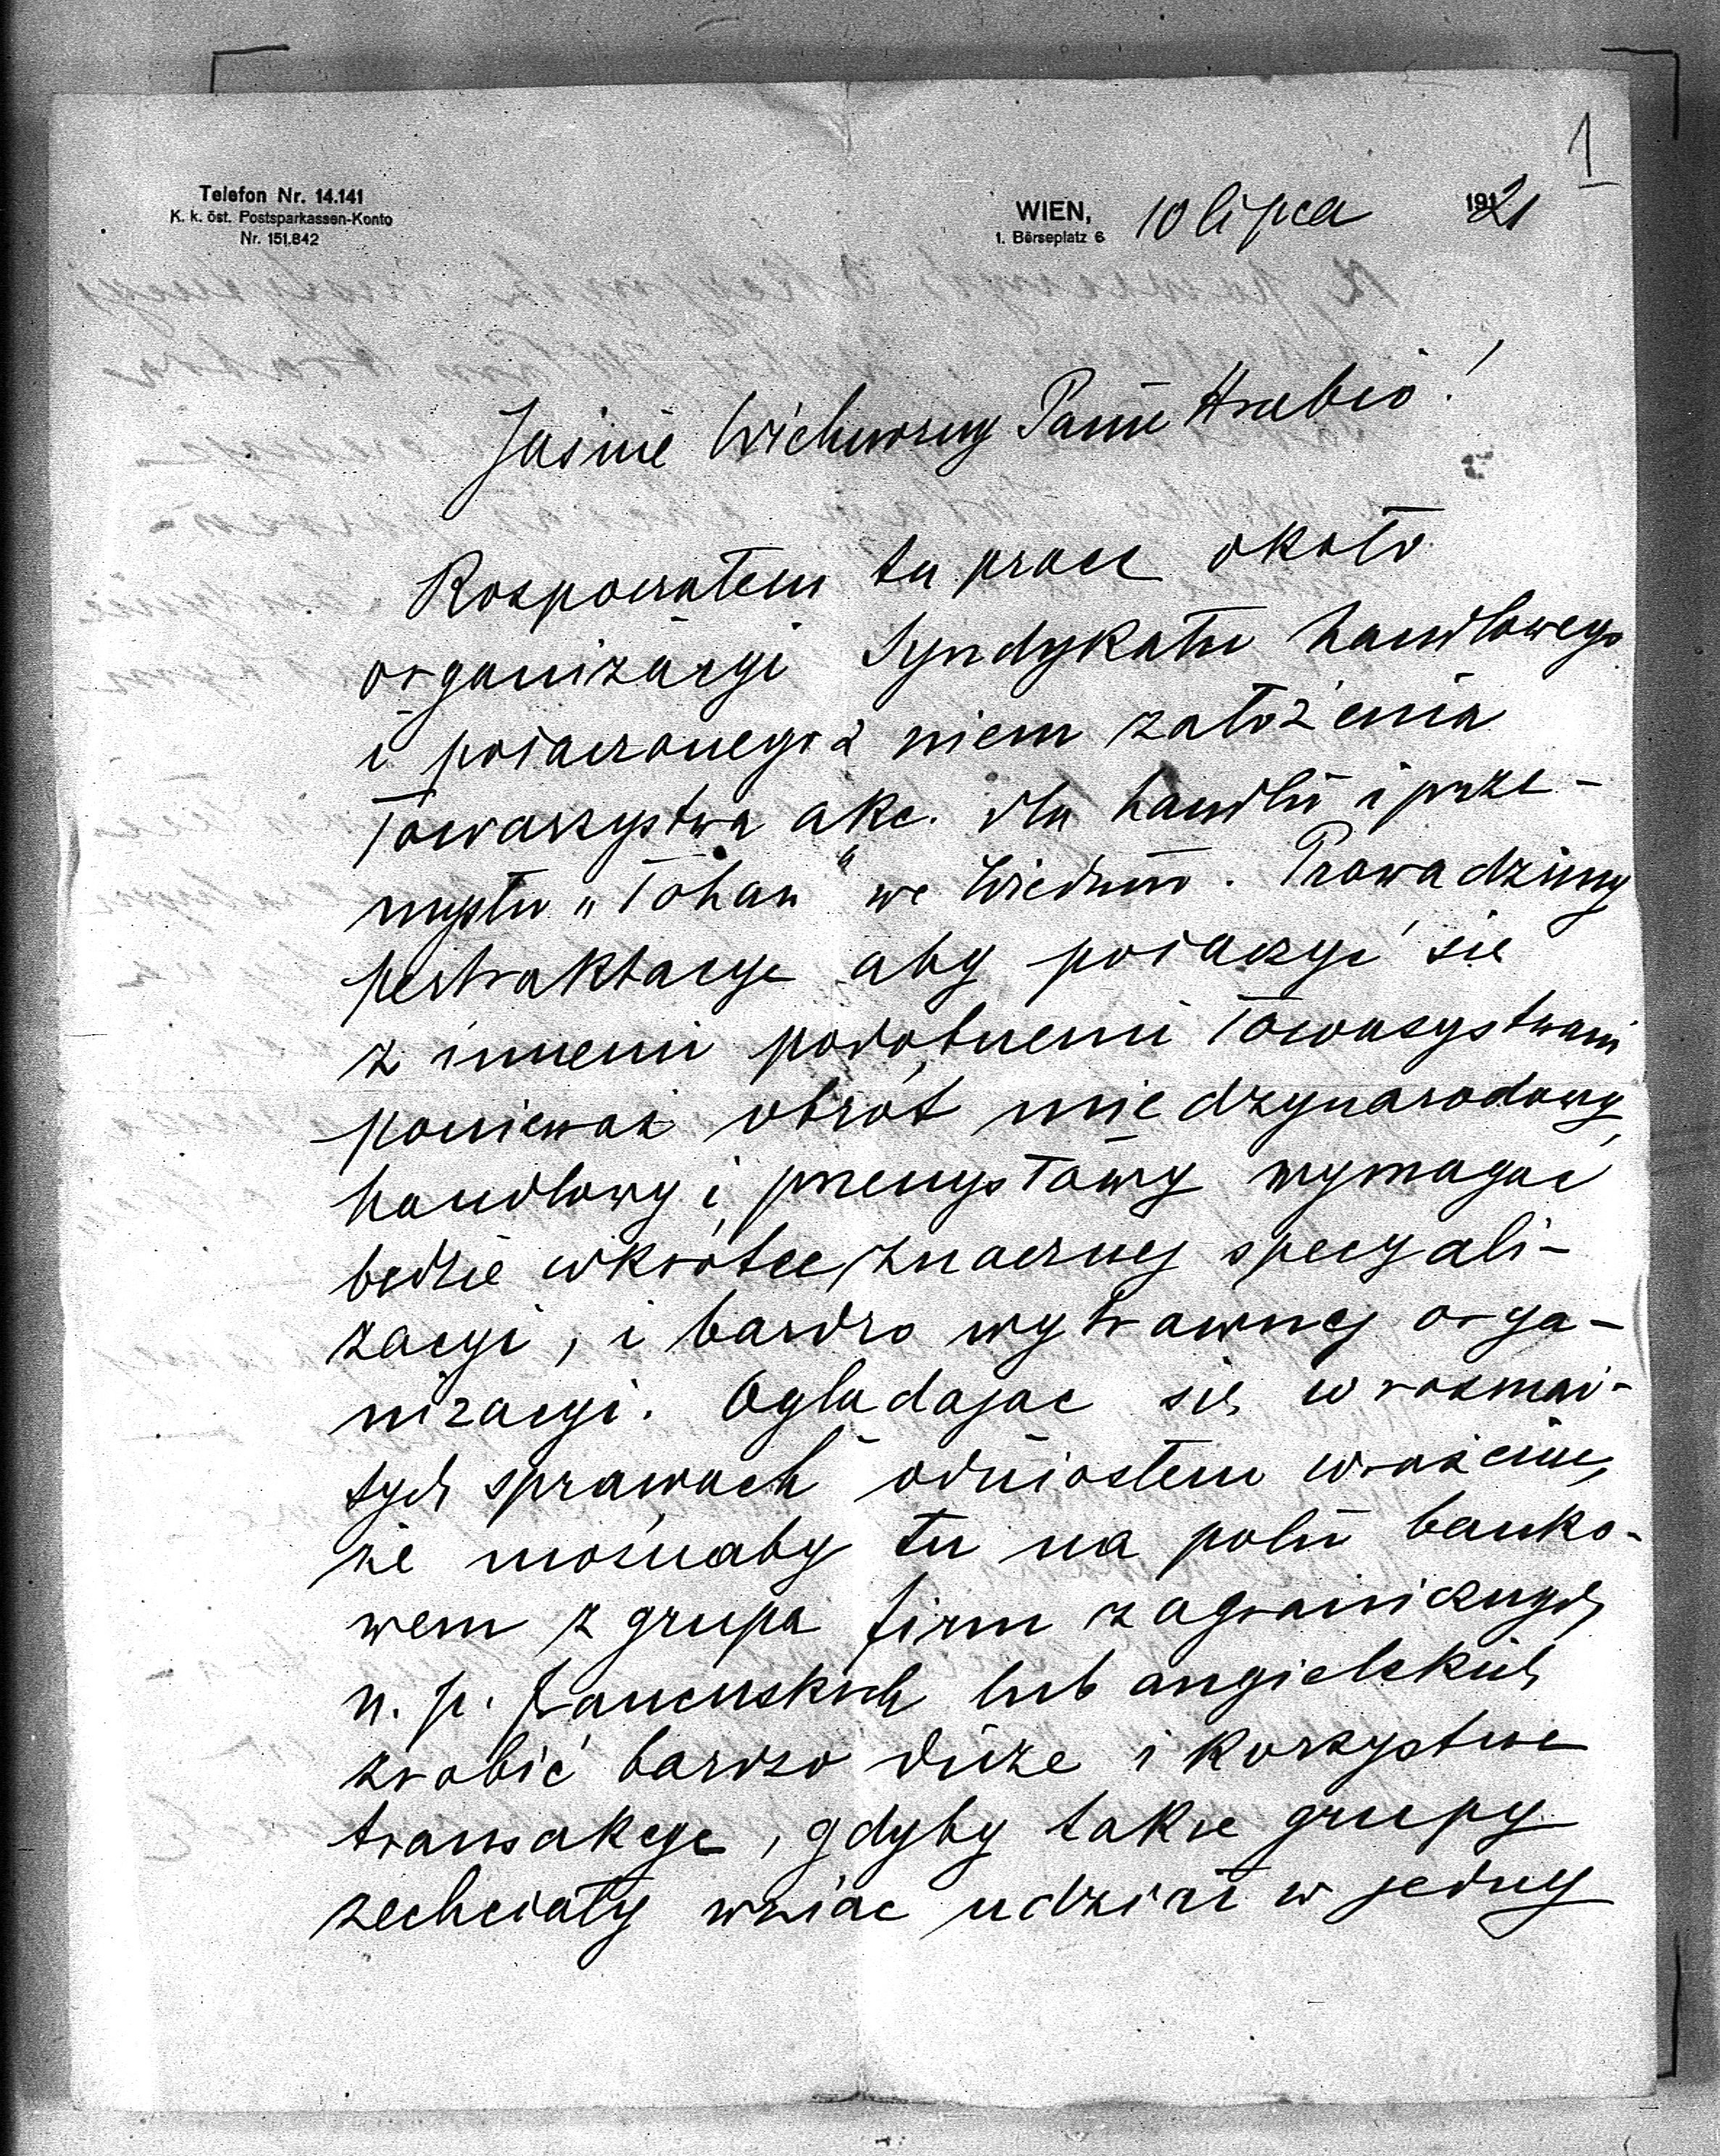 1
Telefon Nr. 14.141
K. k. öst. Postsparkassen-Konto
Nr. 151.842
WIEN, 10 lipca 1921
1. Börseplatz 6
Jaśnie Wielmożny Panie Hrabio!
Rozpocząłem tu prace około
organizacyi Syndykatu handlowego
i połączonego z niem założenia
Towarzystwa akc. dla handlu i prze-
mysłu „Tohan" we Wiedniu. Prowadzimy
pertraktacye aby połączyć się
z innemi podobnemi Towarzystwami
ponieważ obrót międzynarodowy,
handlowy i przemysłowy wymagać
będzie wkrótce znacznej specyali-
zacyi, i bardzo wytrawnej orga-
nizacyi. Oglądając się w rozmai-
tych sprawach odniosłem wrażenie,
że możnaby tu na polu banko-
wem z grupą firm zagranicznych
n. p. francuskich lub angielskich
zrobić bardzo duże i korzystne
transakcye, gdyby takie grupy
zechciały wziąć udział w jednej